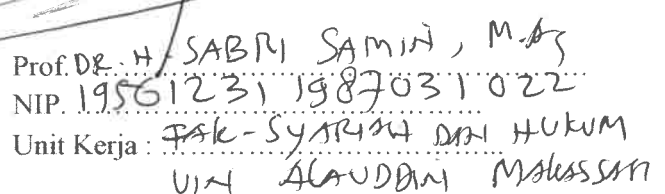 Prof. DR. H. SABRI SAMIN, M.Ag
NIP. 19561231 198703 1 022
Unit Kerja : FAK-SYARIAH DAN HUKUM
UIN ALAUDDIN MAKASSAR